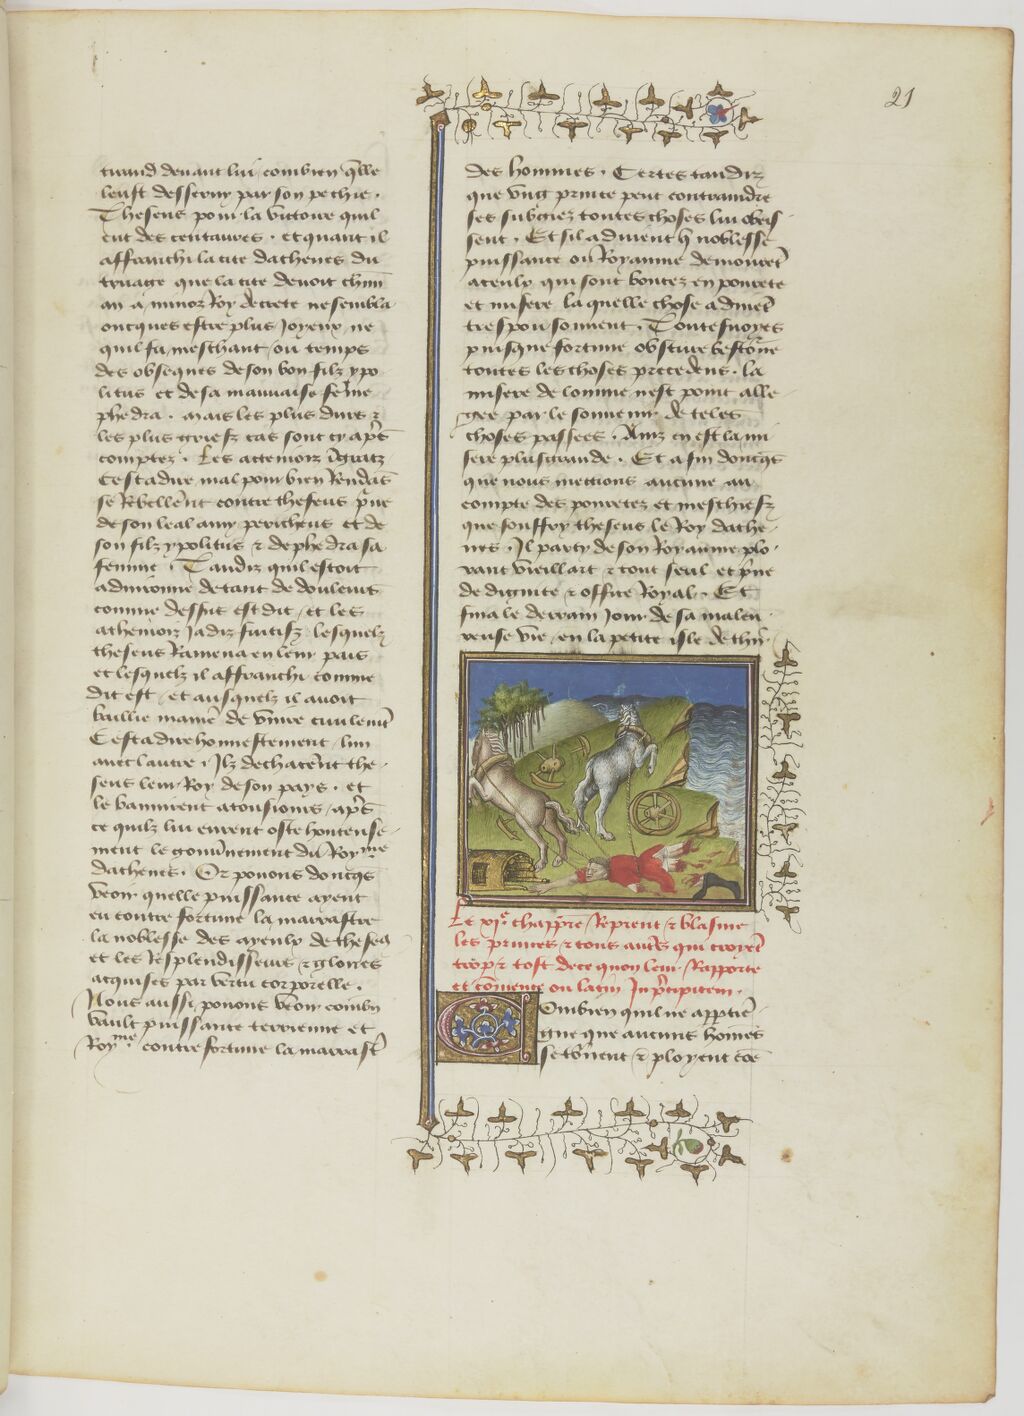 21
tuand deuant lui combien q̄lle
leust desseruy par son pechie.
Theseus pour la victoire quil
eut des centaures. et quant il
affranchi la cite dathenes du
truage que la cite deuoit chūn
an a minoz Roy de crete ne sembla
oncques estre plus Joyeux ne
quil fu meschant / ou temps
des obseques de son bon filz ypo
litus et de sa mauuaise fēme
phedra. mais les plus durs ⁊
les plus griefz cas sont cy ap̄s
comptez. Les atteniois īgratz
Cestadire mal pour bien Rendās
se Rebellerēt contre theseus p̄ue
de son leal amy peritheus et de
son filz ypolitus ⁊ de phedra sa
femme. Tandiz quil estoit
aduironné de tant de douleurs
comme dessus est dit / et les
atheniois Jadiz fuitifz / lesquelz
theseus Ramena en leur pais
et lesquelz il affranchi comme
dit est / et ausquelz il auoit
baillie manie de viure ciuilemēt
Cestadire honnestement / lun
auec lautre / Ilz dechacerēt the
seus leur Roy de son pays. et
le bannirent a tousiours / ap̄s
ce quilz lui eurent oste honteuse-
ment le gouūnement du Royme
dathenes. Or pouons doncq̄s
veoir quelle puissance ayent
eu contre fortune la marrastre
la noblesse des ayeulx de theseus
et les Resplendisseurs ⁊ gloires
acquises par vertu corporelle.
Nous aussi pouons veoir combn
vault puissance terrienne et
Royme. contre fortune la marrastr̄
des hommes. Certes tandiz
que vng prince peut contraindre
ses subgiez toutes choses lui obeis-
sent. Et sil aduient q̄ noblesse
puissance ou Royaume demouret
a ceulx qui sont boutez en pourete
et misere laquelle chose aduiēt
tres pou souuent. Toutesuoyes
puisque fortune obscure bestōrne
toutes les choses precedens. la
misere de lomme nest point alle-
gee par le souuenir de teles
choses passees. Ainz en est la mi
sere plus grande. Et a fin doncq̄s
que nous mettions aucune au
compte des pouretez et meschiefz
que souffry theseus le Roy dathe-
nes. Il party de son Royaume plo-
rant vieillart ⁊ tout seul et p̄ue
de dignite ⁊ office Royal. Et
fina le derrain Jour de sa maleu-
reuse vie / en la petite isle de
Le xi.e chappr̄e Reprent ⁊ blasme
les princes ⁊ tous autrs qui croyēt
trop ⁊ tost de ce quon leur Rapporte
et cōmence ou latin In p̄cipitem.
Combien quil ne apptiē-
gne que aucuns homēs
se ⁊ ployent